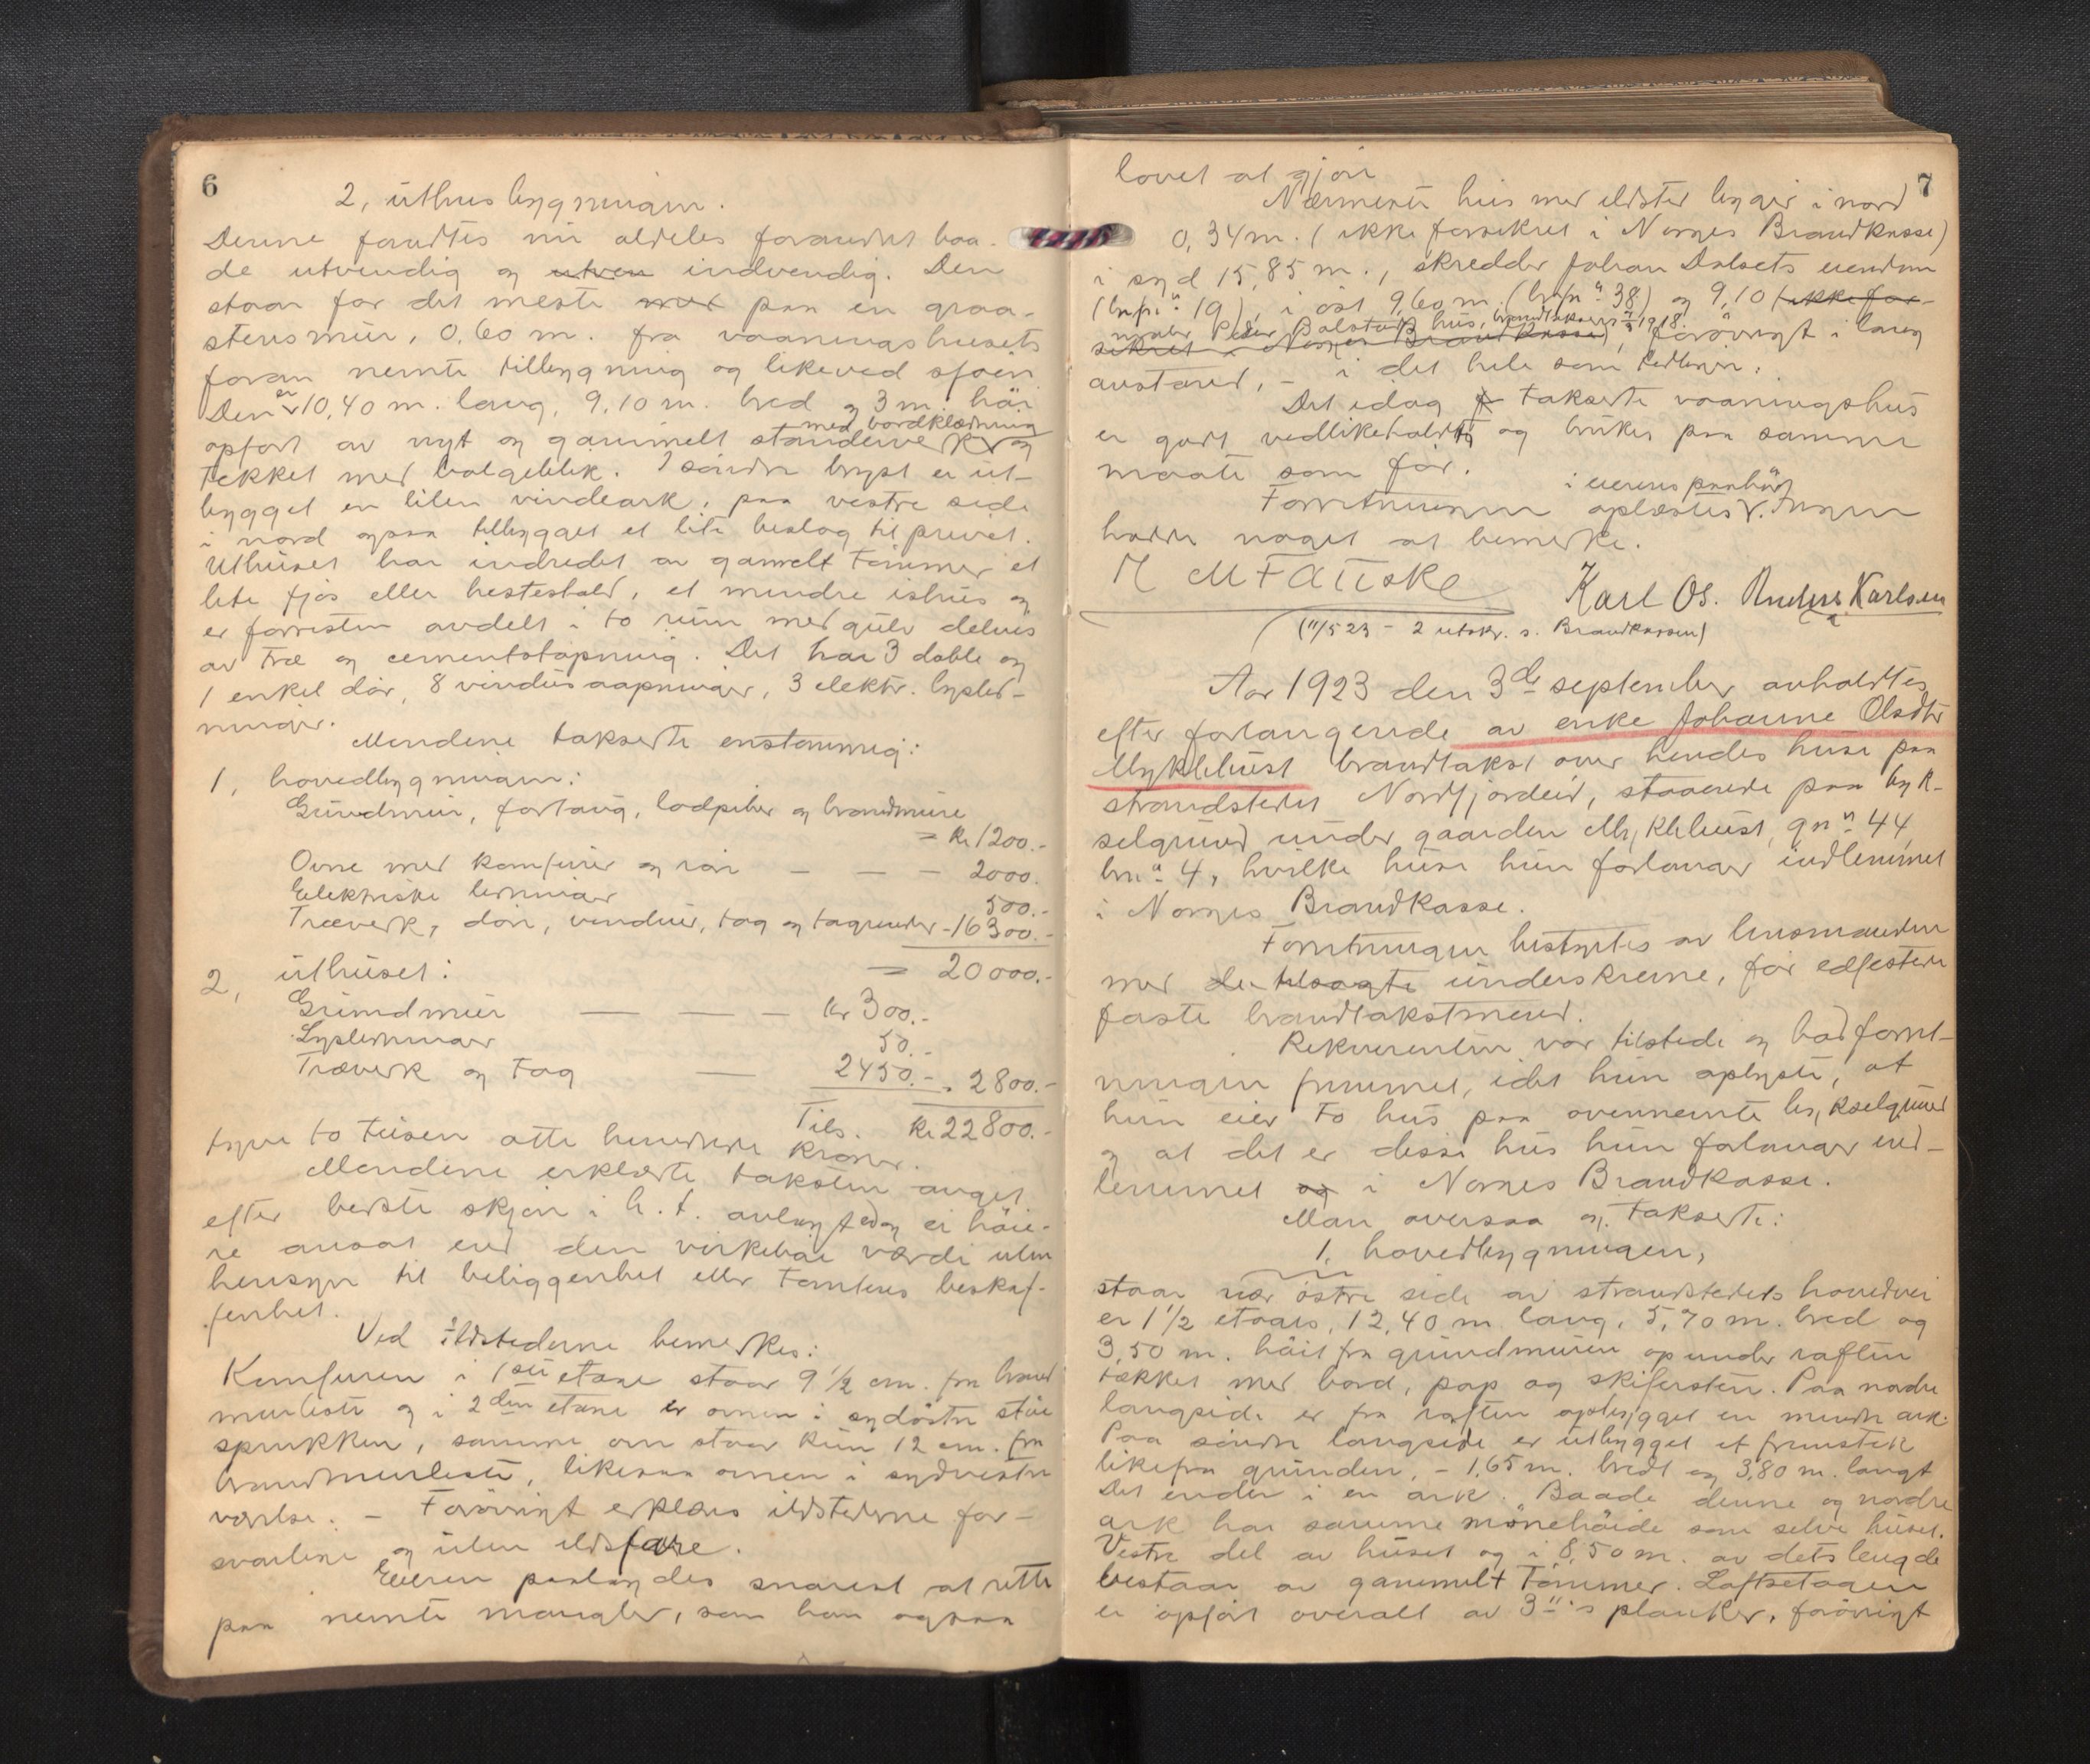 6
2, uthusbygningen.
Denne fandtes nu aldeles forandret baa-
de utvendig og utven indvendig. Den
staar for det meste med paa en graa-
stensmur, 0,60 m. fra vaaningshusets
foran nemte tilbygning og likeved sjøen
Den er 10,40 m. lang, 9,10 m. bred og 3 m. høi
med bordklædning
opført av nyt og gammelt stenderverk og
tekket med bølgeblik. I søndre bryst er ut-
bygget en liten vindeark, paa vestre side
i nord ogsaa tilbygget et lite beslag til privet.
Uthuset har indredet av gamelt tømmer et
lite fjøs eller hestestald, et mindre ishus og
er forresten avdelt i to rum med gulv delvis
av træ og cementstøpning. Det har 3 doble og
1 enkel dør, 8 vindusaapninger, 3 elektr. lysled-
ninger.
Mændene takserte enstemmig:
1, hovedbygningen:
Grundmur, fortaug, lodpiber og brandmure
= kr 1200.-
Ovne med komfurer og rør - - - 2000.
Elektriske ledninger 500.-
Træverk, døre, vinduer, tag og tagrender - 16300.-
= 20000.-
2, uthuset:
Grundmur — — — kr 300.-
Lysledninger 50.-
Træverk og tag — 2450.- . 2800.-
Tils. kr 22800.-
tyve to tusen otte hundrede kroner.
Mændene erklærte taksten avgit
efter bedste skjøn i h. t. avlagt ed og ei høie-
re ansat end den virkelige værdi uten
hensyn til beliggenhet eller tomtens beskaf-
fenhet.
Ved ildstederne bemerkes:
Komfuren i 1ste etage staar 9 1/2 cm. fra brand
murliste og i 2den etage er ovnen i sydøstre stue
sprukken, samme ovn staar kun 12 cm. fra
brandmurliste, likesaa ovnen i sydvestre
værelse. - Forøvrigt erklæres ildstederne for-
svarlige og uten ildsfare.
Eieren paalagdes snarest at rette
paa nemte mangler, som han ogsaa
7
lovet at gjøre
Nærmeste hus med ildsted ligger i nord
0,34 m. (ikke forsikret i Norges Brandkasse)
i syd 15,85 m., skredder Johan Dalsets eiendom
(br.fr.no 19), i øst 9,60 m. (br.fr.no 38) og 9,10 (ikke for-
brandtakseret 1918.
sikret i Norges Brandkasse), forøvrigt i lang
avstand, - i det hele som tidligere.
Det idag takserte vaaningshus
er godt vedlikeholdt og brukes paa samme
maate som før.
i eierens paahør
Forretningen oplæstes. Ingen
hadde noget at bemerke.
M Fauske
Karl Os. Anders Karlsen
(11/5 23 - 2 utskr. s. Brandkassen)
Aar 1923 den 3de september avholdtes
efter forlangende av enke Johanne Olsdtr
Myklebust brandtakst over hendes huse paa
strandstedet Nordfjordeid, staaende paa byk-
selgrund under gaarden Myklebust, gn no 44,
brno 4, hvilke huse hun forlanger indlemmet
i Norges Brandkasse.
Forretningen bestyrtes av lensmanden
med de tilsagte underskrevne, før edfestede
faste brandtakstmænd.
Rekvirenten var tilstede og bad forret-
ningen fremmet, idet hun oplyste, at
hun eier to hus paa ovennemte bykselgrund
og at det er disse hus hun forlanger ind-
lemmet og i Norges Brandkasse.
Man oversaa og takserte:
1. hovedbygningen,
staar nær østre side av strandstedets hovedvei
er 1 1/2 etages, 12,40 m. lang, 5,70 m. bred og
3,50 m. høit fra grundmuren op under raften
tækket med bord, pap og skifersten. Paa nordre
langside er fra raften opbygget en mindre ark.
Paa søndre langside er utbygget et fremstik
likefra grunden, - 1,65 m. bredt og 3,80 m. langt
Det ender i en ark. Baade denne og nordre
ark har samme mønehøide som selve huset.
Vestre del av huset og i 8,50 m. av dets lengde
bestaar av gammelt tømmer. Loftsetagen
er opført overalt av 3"s planker, forøvrigt